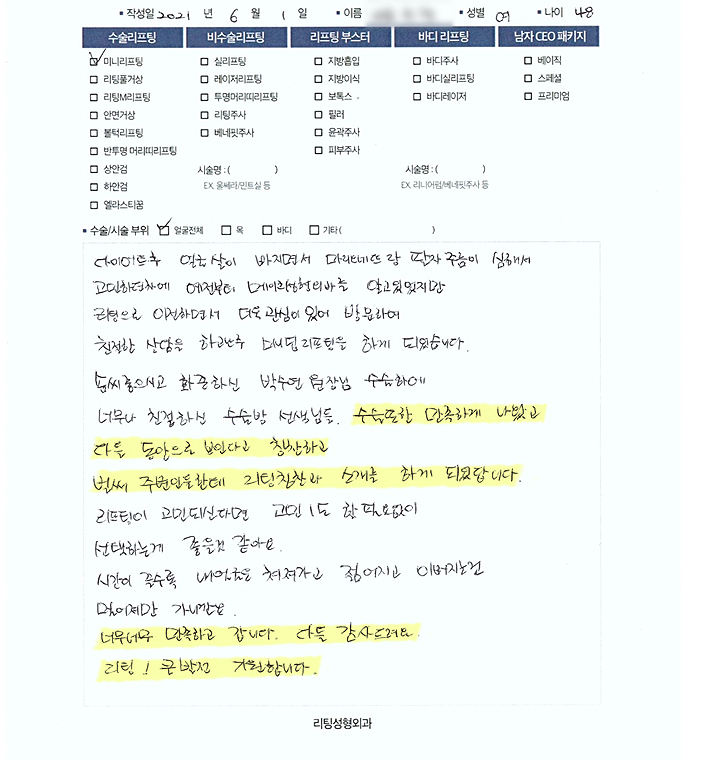 ▪ 작성일 2021 년 6 월 1 일 ▪ 이름 ▪ 성별 여 ▪ 나이 48
수술리프팅 비수술리프팅 리프팅 부스터 바디 리프팅 남자 CEO 패키지
미니리프팅 실리프팅 지방흡입 바디주사 베이직
리팅풀거상 레이저리프팅 지방이식 바디실리프팅 스페셜
리팅M리프팅 투명머리띠리프팅 보톡스 바디레이저 프리미엄
안면거상 리팅주사 필러
볼턱리프팅 베네핏주사 윤곽주사
반투명 머리띠리프팅 피부주사
상안검 시술명 : ( ) 시술명 : ( )
하안검 EX. 울쎄라/민트실 등 EX. 리니어펌/베네핏주사 등
엘라스티꿈
▪ 수술/시술 부위 얼굴전체 목 바디 기타( )
다이어트후 얼굴살이 빠지면서 마리오네트랑 팔자주름이 심해서
고민하던차에 예전부터 알고있었지만
리팅으로 이전하면서 더욱 관심이 있어 방문하여
친절한 상담을 하고난후 미니리프팅을 하게 되었습니다.
솜씨좋으시고 화끈하신 박수연 원장님 수술하에
너무나 친절하신 수술방 선생님들. 수술또한 만족하게 나왔고
다들 동안으로 보인다고 칭찬하고
벌써 주변인들한테 리팅칭찬과 소개를 하게 되었답니다.
리프팅이 고민되신다면 고민 1도 할 필요없이
선택하는게 좋을것 같아요.
시간이 갈수록 내얼굴은 쳐져가고 젊어지고 이뻐지는건
멀어져만 가니깐요.
너무너무 만족하고 갑니다. 다들 감사드려요.
리팅! 큰발전 기원합니다.
리팅성형외과